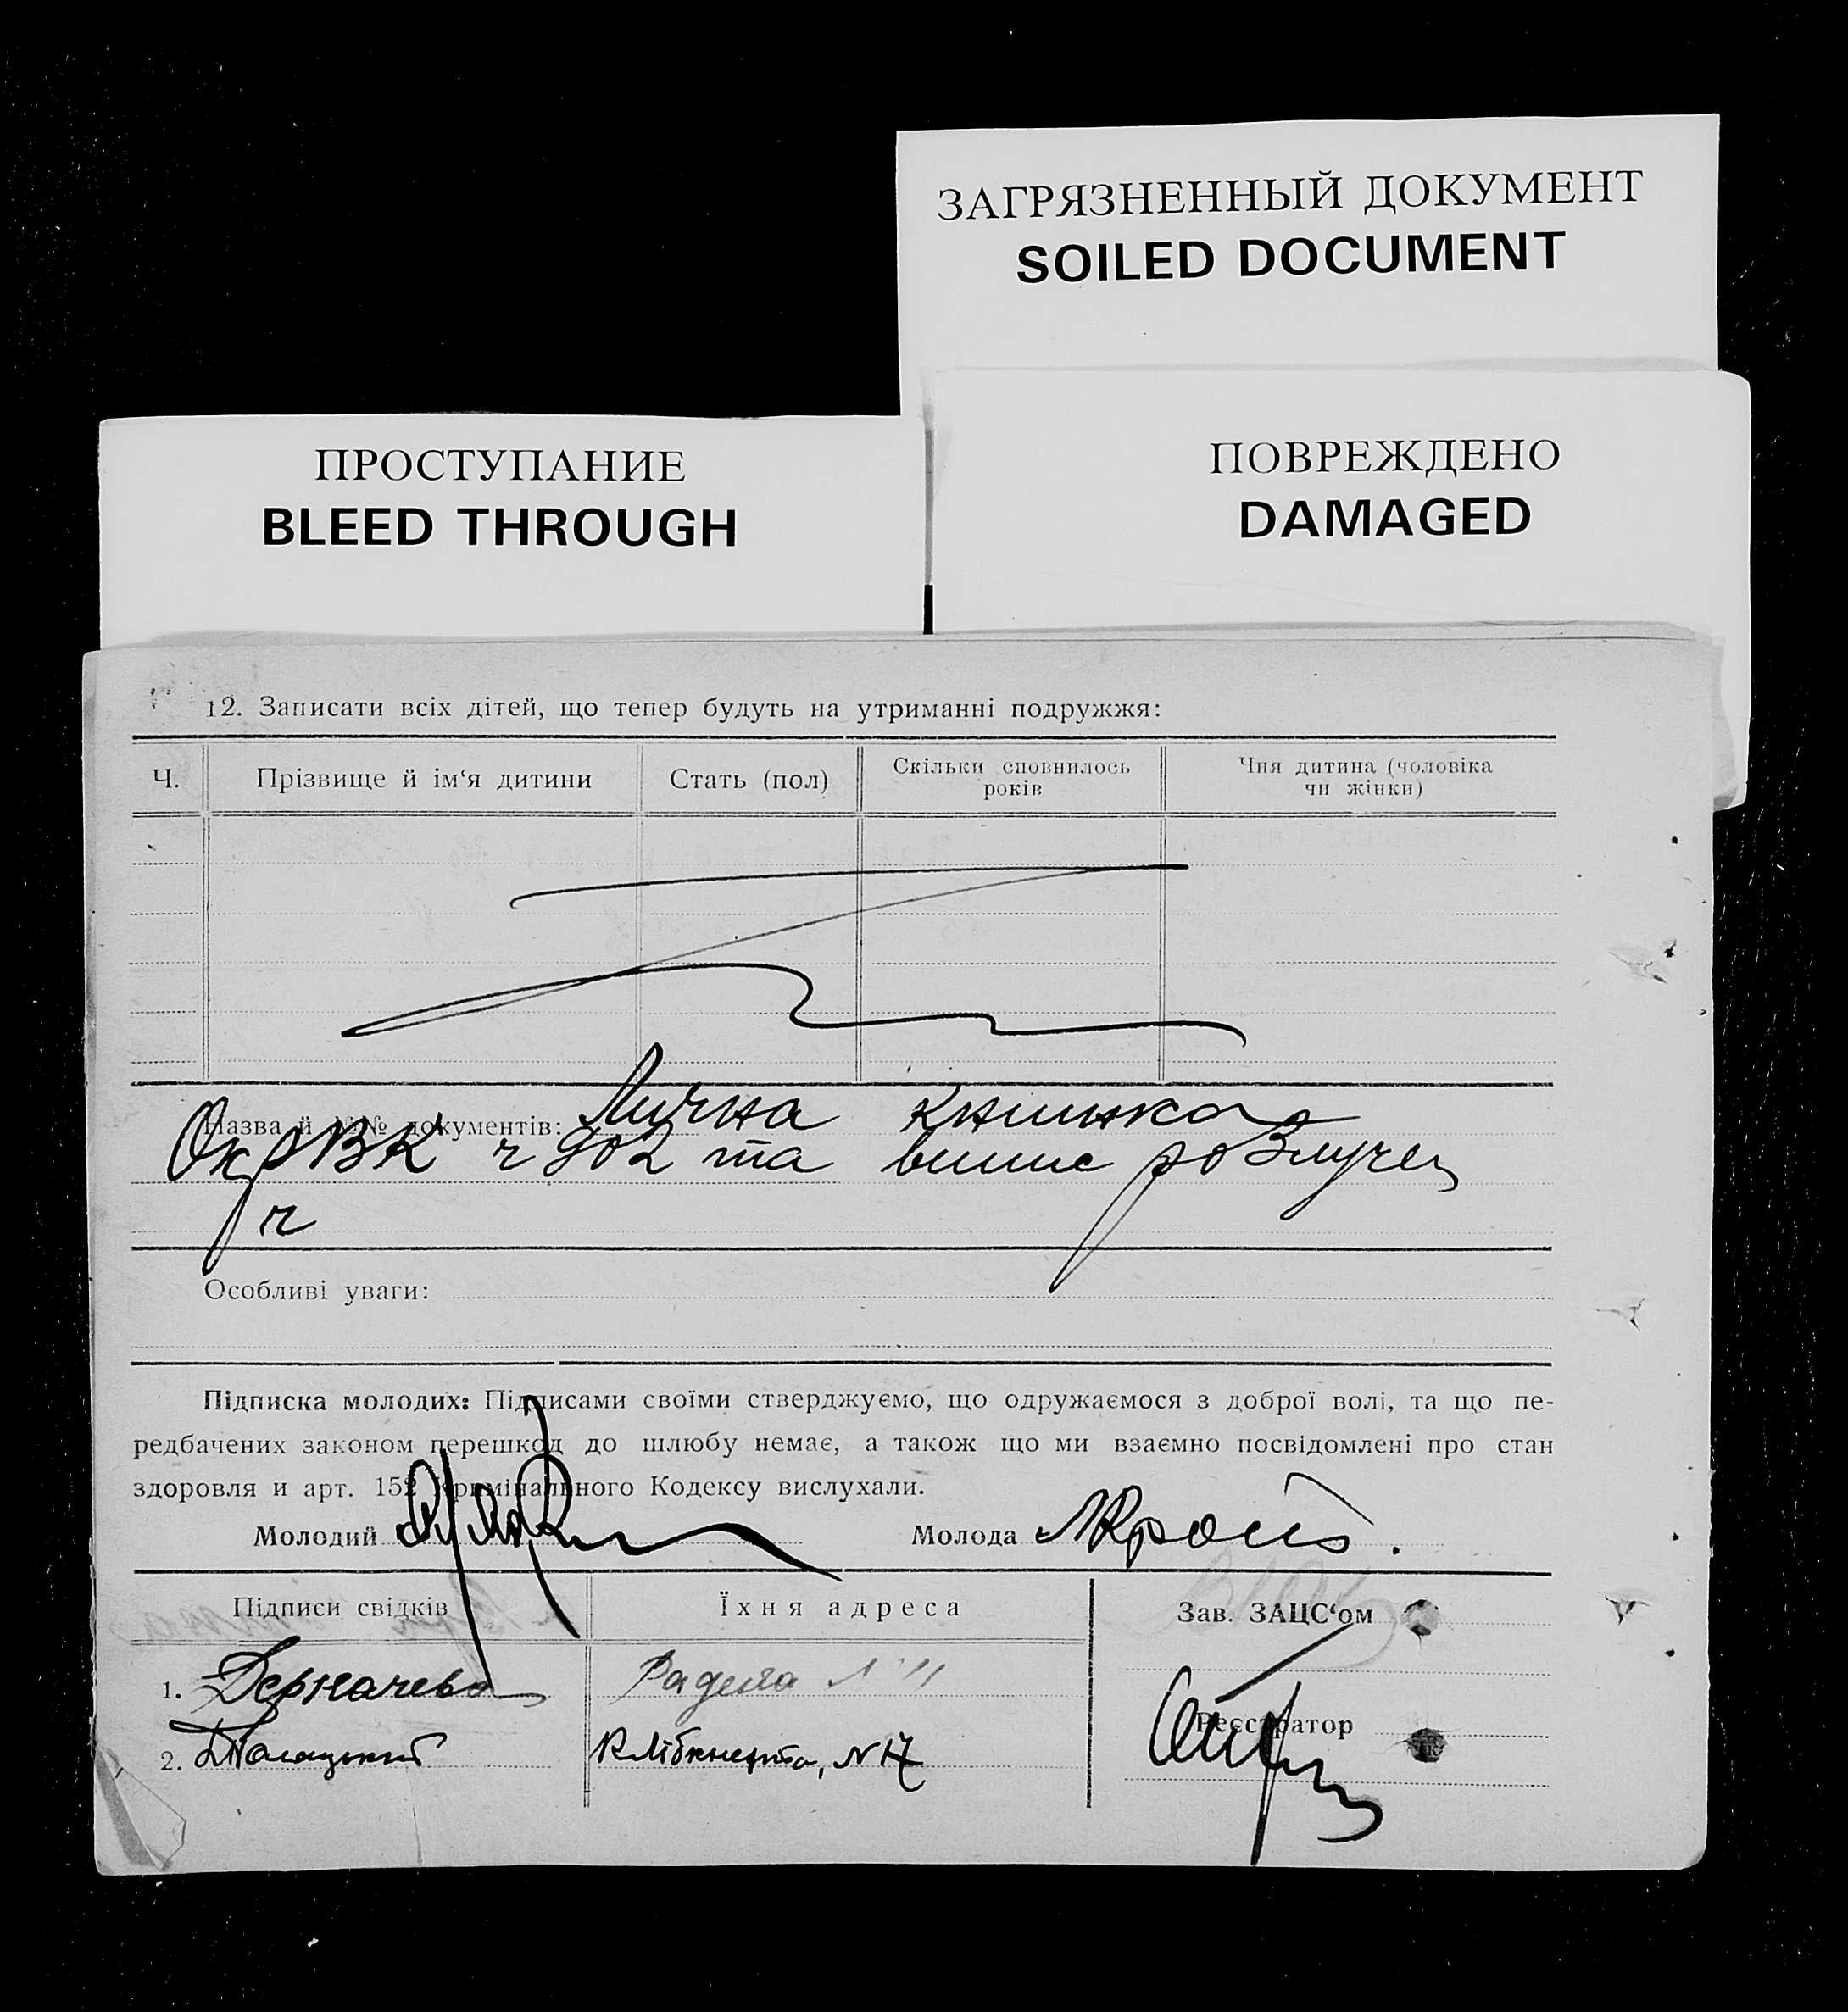 ЗАГРЯЗНЕННЫЙ ДОКУМЕНТ
SOILED DOCUMENT
ПРОСТУПАНИЕ
BLEED THROUGH
ПОВРЕЖДЕНО
DAMAGED
12. Записати всіх дітей, що тепер будуть на утриманні подружжя:
Ч.
Прізвище й ім‘я дитини
Стать (пол)
Скільки сповнилось
років
Чия дитина (чоловіка
чи жінки)
Назва й №№ документів: Лична книжка
ОкрВК ч 902 та випис розлучен
ч
Особливі уваги:
Підписка молодих: Підписами своїми стверджуємо, що одружаємося з доброї волі, та що пе-
редбачених законом перешкод до шлюбу немає, а також що ми взаємно посвідомлені про стан
здоровля и арт. 152 Кримінального Кодексу вислухали.
Молодий
Молода
Підписи свідків
Їхня адреса
Зав. ЗАЦС‘ом
1. Деркачева
2.
К Лібкнехта, N 17
Реєстратор